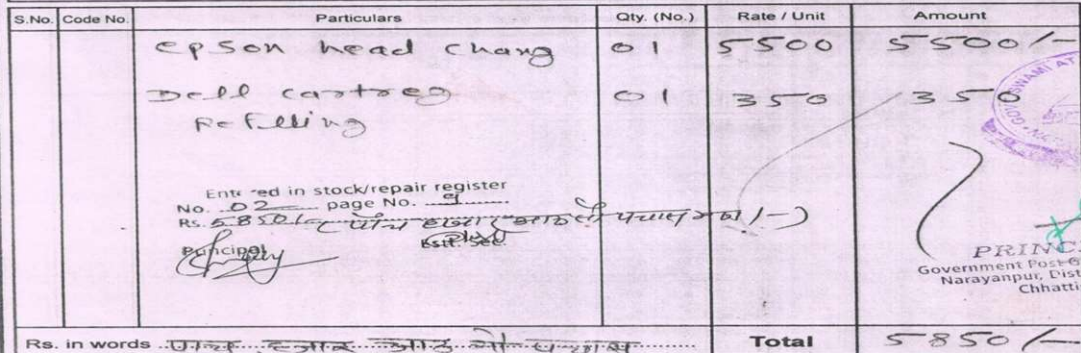 S.No. Code No. Particulars Qty. (No.) Rate / Unit Amount
epson head chang 01 5500 5500/-
Dell cartreg 01 350 350
Refilling
GOV SWAMI AT
Entered in stock/repair register
No. 02 page No. 9
Rs. 5850/- (पांच हजार आठ सौ पचास रु /-)
Principal
PRINC
Government Post G
Narayanpur, Dist
Chhatti
Rs. in words पांच हजार आठ सौ पचास Total 5850/-